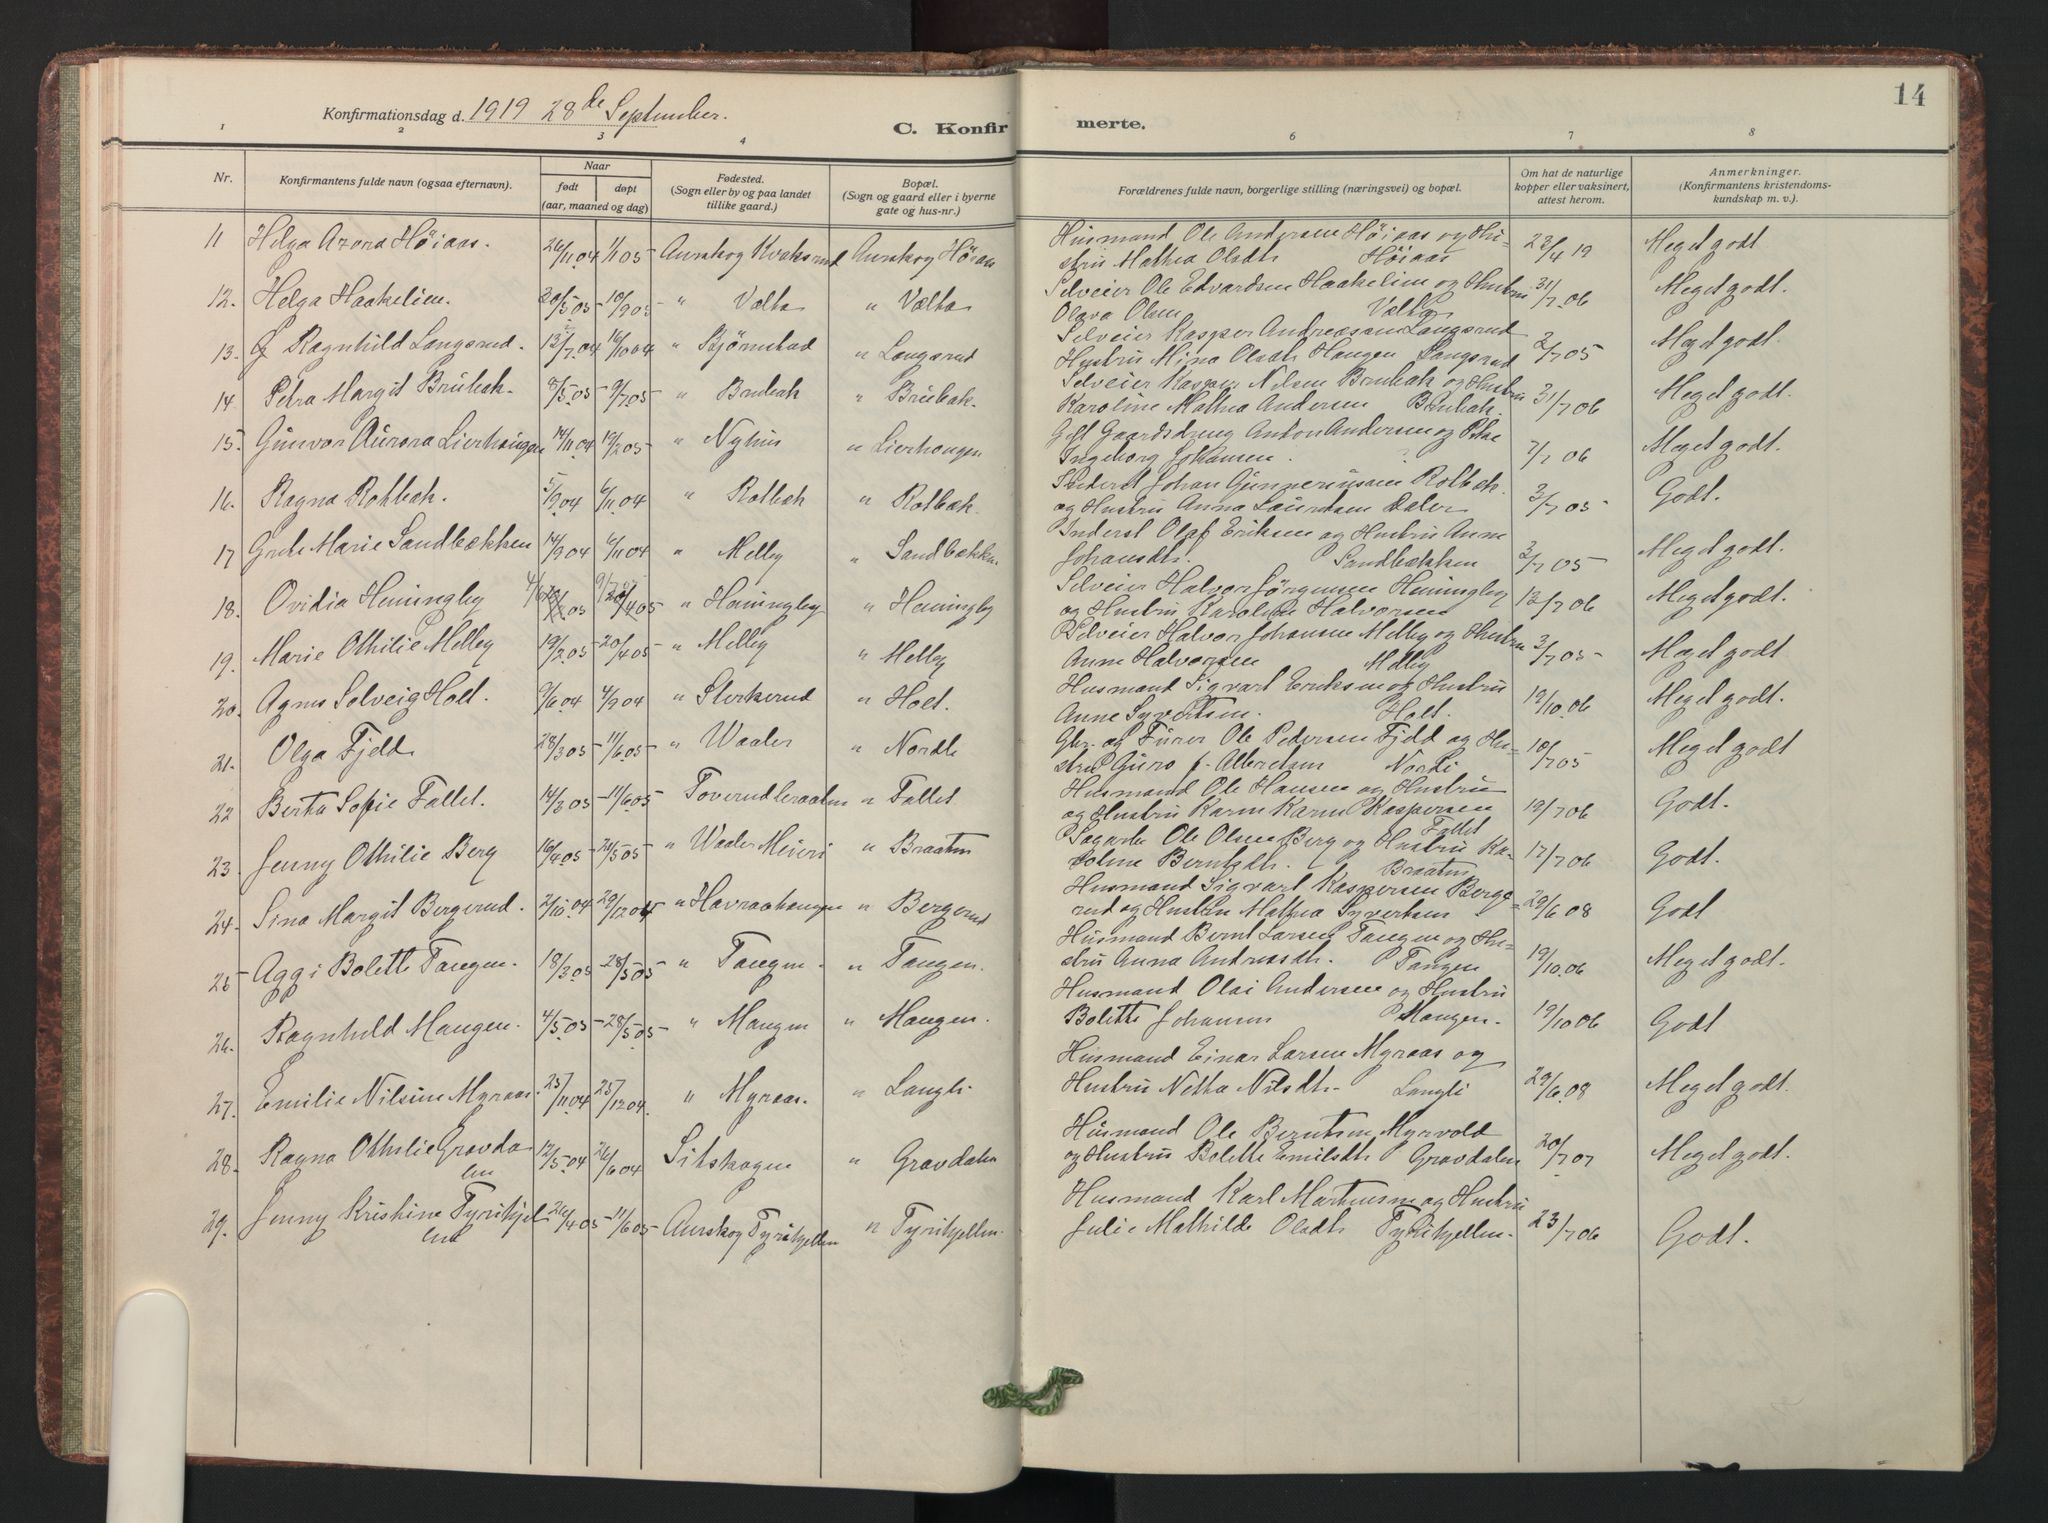 14
Konfirmationsdag d. 1919 28de September.
C. Konfirmerte.
1 2 3 4 6 7 8
Nr.
Konfirmantens fulde navn (ogsaa efternavn).
Naar
født døpt
(aar, maaned og dag)
Fødested.
(Sogn eller by og paa landet
tillike gaard.)
Bopæl.
(Sogn og gaard eller i byerne
gate og hus-nr.)
Forældrenes fulde navn, borgerlige stilling (næringsvei) og bopæl.
Om hat de naturlige
kopper eller vaksinert,
attest herom.
Anmerkninger.
(Konfirmantens kristendoms-
kundskap m. v.).
11 Helga Azora Höiaas. 26/11 04 1/1 05 Aurskog Kvaksrud Aurskog Höiaas Husmand Ole Andersen Höiaas og Hu-
stru Mathea Olsdt. Höiaas 23/4 19 Meget godt
12. Helga Haakelien. 20/5 05 10/9 05 " Valta " Vælta Selveier Ole Edvardsen Haakelien og Hustru
Olava Olsen Valta 31/7 06 Meget godt.
13. Ragnhild Langsrud. 13/7 04 16/10 04 " Bjørnstad " Langsrud Selveier Kasper Andreasen Langsrud
Hustru Mina Olsdt. Haugen Langsrud 2/7 05 Meget godt.
14. Petra Margit Brubak. 8/5 05 9/7 05 " Brubak " Brubak. Selveier Kasper Nilsen Brubak og Hustru
Karoline Mathea Andersen Brubak. 31/7 06 Meget godt.
15. Gunvor Aurora Lierhaugen 14/11 04 19/2 05 " Nyhus " Lierhaugen Gift Gaardsdreng Anton Andersen og
Ingeborg Johansen. 7/7 06 Meget godt.
16. Ragna Rotbak. 5/9 04 6/11 04 " Rotbak " Rotbak. Inderst Johan Gunneriusen Rotbak.
og Hustru Anna Lauritsen Daler 3/7 05 Godt.
17 Grete Marie Sandbækken 14/9 04 6/11 04 " Melby " Sandbækken Inderst Olaf Eriksen og Hustru Anne
Johansdt. Sandbækken 3/7 05 Meget godt.
18. Ovidia Heningby 05 20/4 05 " Heningby " Heningby Selveier Halvor Jörgensen Heningby
og Hustru Karoline Halvorsen 13/7 06 Meget godt.
19. Marie Othilie Melby 19/2 05 20/4 05 " Melby " Melby Selveier Halvor Johansen Melby og Hustru
Anne Halvorsen Melby 3/7 05 Meget godt
20. Agnes Solveig Holt. 9/6 04 4/9 04 " Sterkerud " Holt. Husmand Sigvart Eriksen og Hustru
Anne Syvertsen. Holt. 19/10 06 Meget godt.
21. Olga Fjeld 28/3 05 11/6 05 " Waaler " Nordli Gbr. og Furer Ole Pedersen Fjeld og Hu-
stru Guro f. Albretsen Nordli 10/7 05 Meget godt
22 Berta Sofie Fallet. 14/3 05 11/6 05 Toverudleraaten " Fallet. Husmand Ole Hansen og Hustru
og Hustru Karen Karen Kaspersen
Fallet 19/7 06 Godt.
23. Jenny Othilie Berg 16/4 05 21/5 05 " Waaler Meieri " Braaten Sagarb. Ole Olsen Berg og Hustru Ka-
roline Berntsdt. Braaten 17/7 06 Godt.
24. Sina Margit Bergerud. 2/10 04 29/12 04 " Havraahaugen " Bergerud Husmand Sigvart Kaspersen Berge-
rud og Hustru Mathea Syvertsen 29/6 08 Godt
25 Aggi Bolette Tangen. 18/3 05 28/5 05 " Tangen. " Tangen. Husmand Bernt Larsen Tangen og Hu-
stru Anna Andreasdt. Tangen 19/10 06 Meget godt.
26. Ragnhild Mangen. 4/5 05 28/5 05 " Mangen " Mangen. Husmand Olai Andersen og Hustru
Bolette Johansen Mangen. 19/10 06 Godt
27. Emilie Nilsine Myraas. 25/11 04 25/12 04. " Myraas. " Langli Husmand Einar Larsen Myraas og
Hustru Netta Nilsdt. Langli 29/6 08 Meget godt.
28. Ragna Othilie Gravda
len 12/5 04 26/6 04 Sitskogen " Gravdalen Husmand Ole Berntsen Myrvold
og Hustru Bolette Emilsdt. Gravdalen 20/7 07 Meget godt.
29. Jenny Kristine Tyrihjel
len 26/4 05 11/6 05 Aurskog Tyrihjellen " Tyrihjellen. Husmand Karl Martinsen og Hustru
Julie Mathilde Olsdt. Tyrihjellen. 23/7 06 Godt.